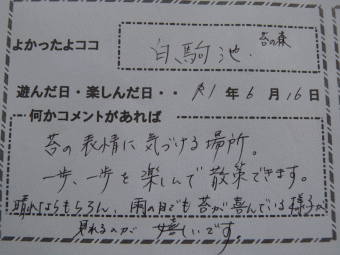 よかったよココ
白駒池. 苔の森
遊んだ日・楽しんだ日・・ R1年6月16日
何かコメントがあれば
苔の表情に気づける場所。
一歩、一歩を楽しんで散策できます。
晴ればもちろん、雨の日でも苔が喜んでいる様子が
見れるのが嬉しいです。